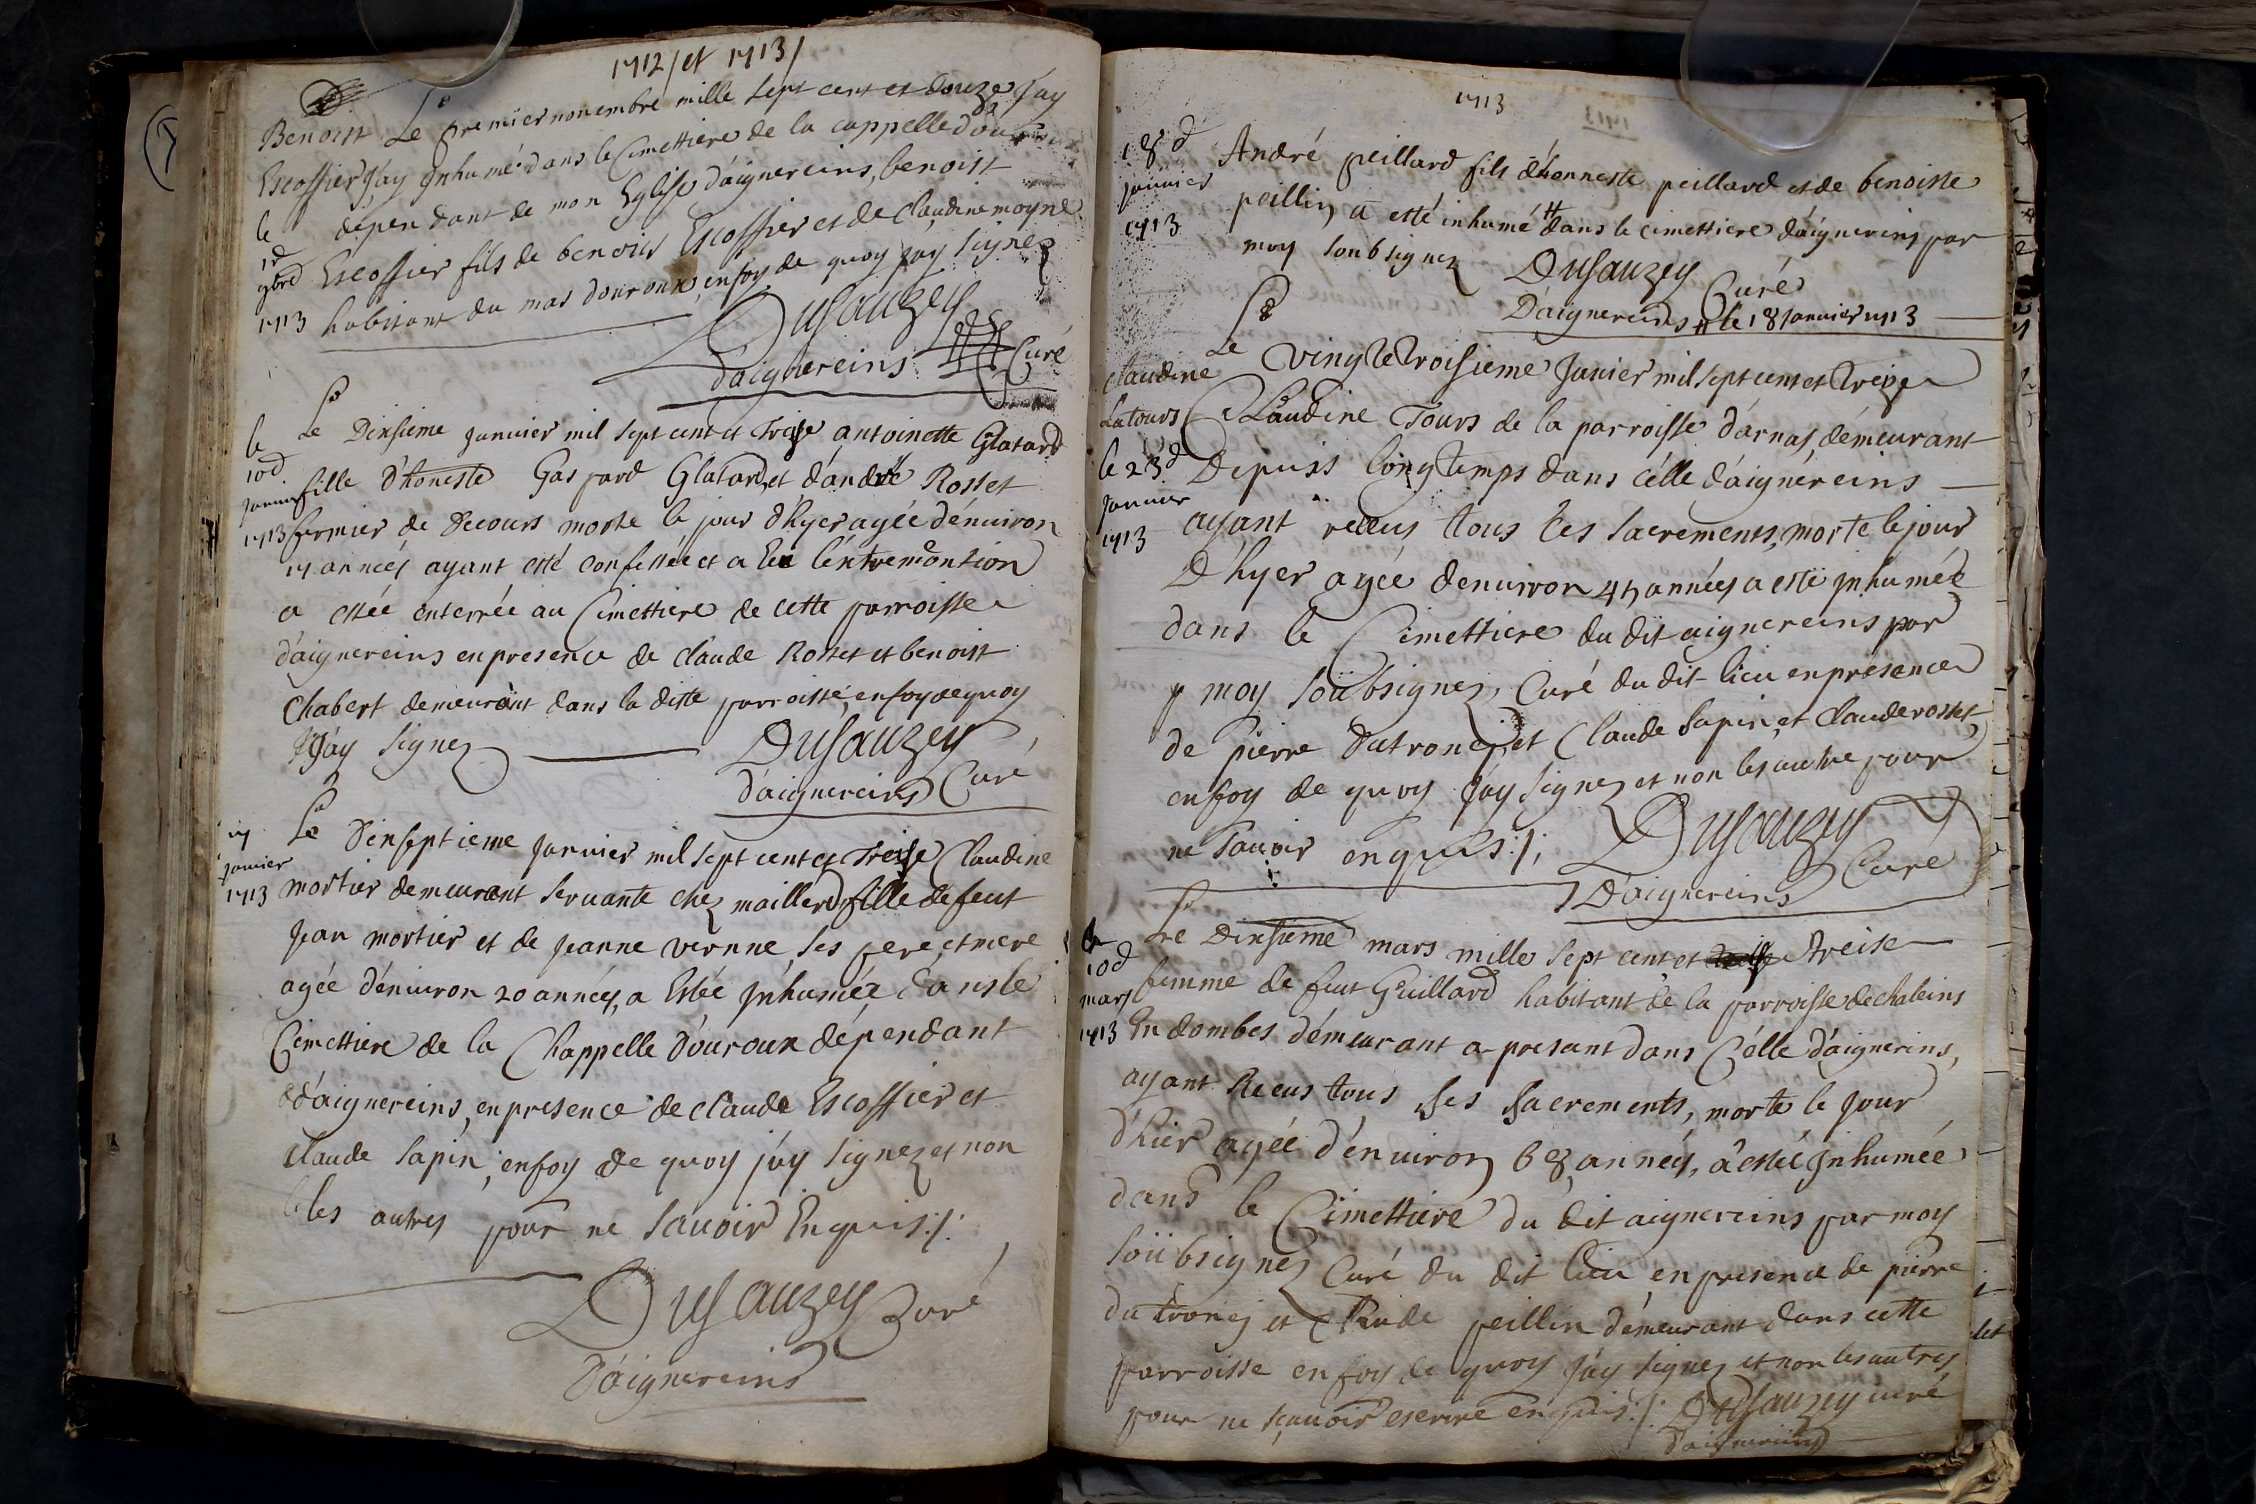 1712/et 1713/
Benoist Le premier nouembre mille sept cent et douze Jay
Escoffier Jay Inhumé dans le Cimettiere de la cappelle d'ou
le dépendant de mon Eglise d'aignereins, benoist
1d 9bre Escoffier fils de benoist Escoffier et de claudine moyne
1713 habitant du mas douroux, en foy de quoy jay signez
DuSauzey
d'aignereins Curé
le Le Dixsieme januier mil sept cent et treise antoinette Glatard
10d januier fille d'honeste Gaspard Glatard et d'andrée Rosset
1713 fermier de Decours morte le jour d'hyer agée d'enuiron
17 années ayant esté confessée et a Eu l'éxtremontion
a estée enterrée au Cimettiere de cette parroisse
d'aignereins en presence de claude Rosset et benoist
Chabert demeurant dans la ditte parroisse, en foy de quoy
J'ay signez DuSauzey
d'aignereins Curé
17 Le Dixseptieme januier mil sept cent et treise Claudine
januier
1713 mortier demeurant seruante chez maillard fille de feut
Jean mortier et de jeanne vernne, ses pere, et mere
agée d'enuiron 20 années, a Estée Inhumée dans le
Cimettiere de la Chappelle d'ouroux dépendant
d'aignereins, en presence de claude Escoffier et
claude Sapin, en foy de quoy j'ay signez et non
les autres pour ne sauoir Enquis:/:
DuSauzey Curé
D'aignereins
1713
18d André peillard fils d'honneste peillard et de benoiste
januier
1713 peillin a esté inhumé # dans le cimettiere d'aignereins par
moy soubsignez DuSauzey Curé
D'aignereins # le 18 januier 1713
Le vingt et troisieme Januier mil sept cent et treize
claudine
Latours Claudine Tours de la parroisse d'arnas, démeurant
le 23d Depuis longtemps dans célle d'aignéreins
januier
1713 ayant receus tous les sacrements, morte le jour
D'hyer agée denuiron 45 années a esté Inhumée
dans le Cimettiere du dit aignereins par
moy soübsignez, Curé du dit lieu en presence
de pierre dutroncy, et Claude Sapin, et Claude rosset
en foy de quoy J'ay signez et non les autre pour
ne sauoir enquis:/: DuSauzey
D'aignereins Curé
le Le Dixsieme mars mille sept cent et treise
10d
mars femme de feut Guillard habitant de la parroisse de chaleins
1713 En dombes démeurant a present dans Célle d'aignereins,
ayant Receus tous ses sacrements, morte le jour
d'hier agée d'enuiron 68 années, a estée Inhumée
dans le Cimettiere du dit aignereins par moy
soübsignez Curé du dit lieu en presence de pierre
du troncy et Claude peillin démeurant dans cette
parroisse en foy de quoy J'ay signez et non les autres
pour ne sçauoir escrire enquis:/: DuSauzey curé
d'aignereins